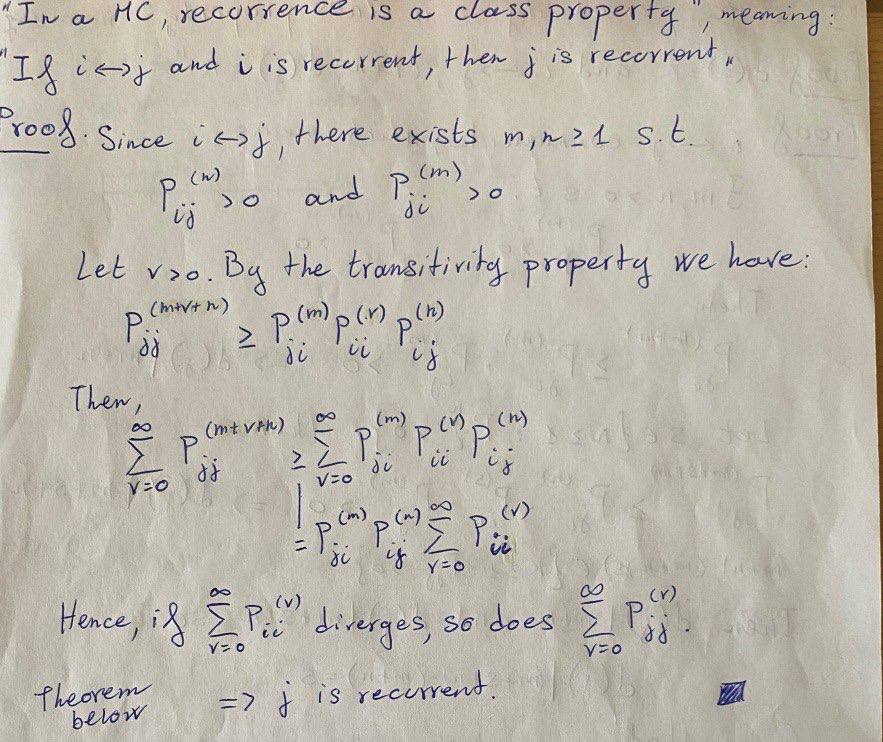 "In a MC, recurrence is a class property", meaning:
"If i↔j and i is recurrent, then j is recurrent„
Proof. Since i↔j, there exists m,n≥1 s.t.
P_{ij}^{(n)} >0 and P_{ji}^{(m)} >0
Let v>0. By the transitivity property we have:
P_{jj}^{(m+v+n)} ≥ P_{ji}^{(m)} P_{ii}^{(v)} P_{ij}^{(n)}
Then,
∑_{v=0}^{∞} P_{jj}^{(m+v+n)} ≥ ∑_{v=0}^{∞} P_{ji}^{(m)} P_{ii}^{(v)} P_{ij}^{(n)}
= P_{ji}^{(m)} P_{ij}^{(n)} ∑_{v=0}^{∞} P_{ii}^{(v)}
Hence, if ∑_{v=0}^{∞} P_{ii}^{(v)} diverges, so does ∑_{v=0}^{∞} P_{jj}^{(v)}.
Theorem below => j is recurrent.